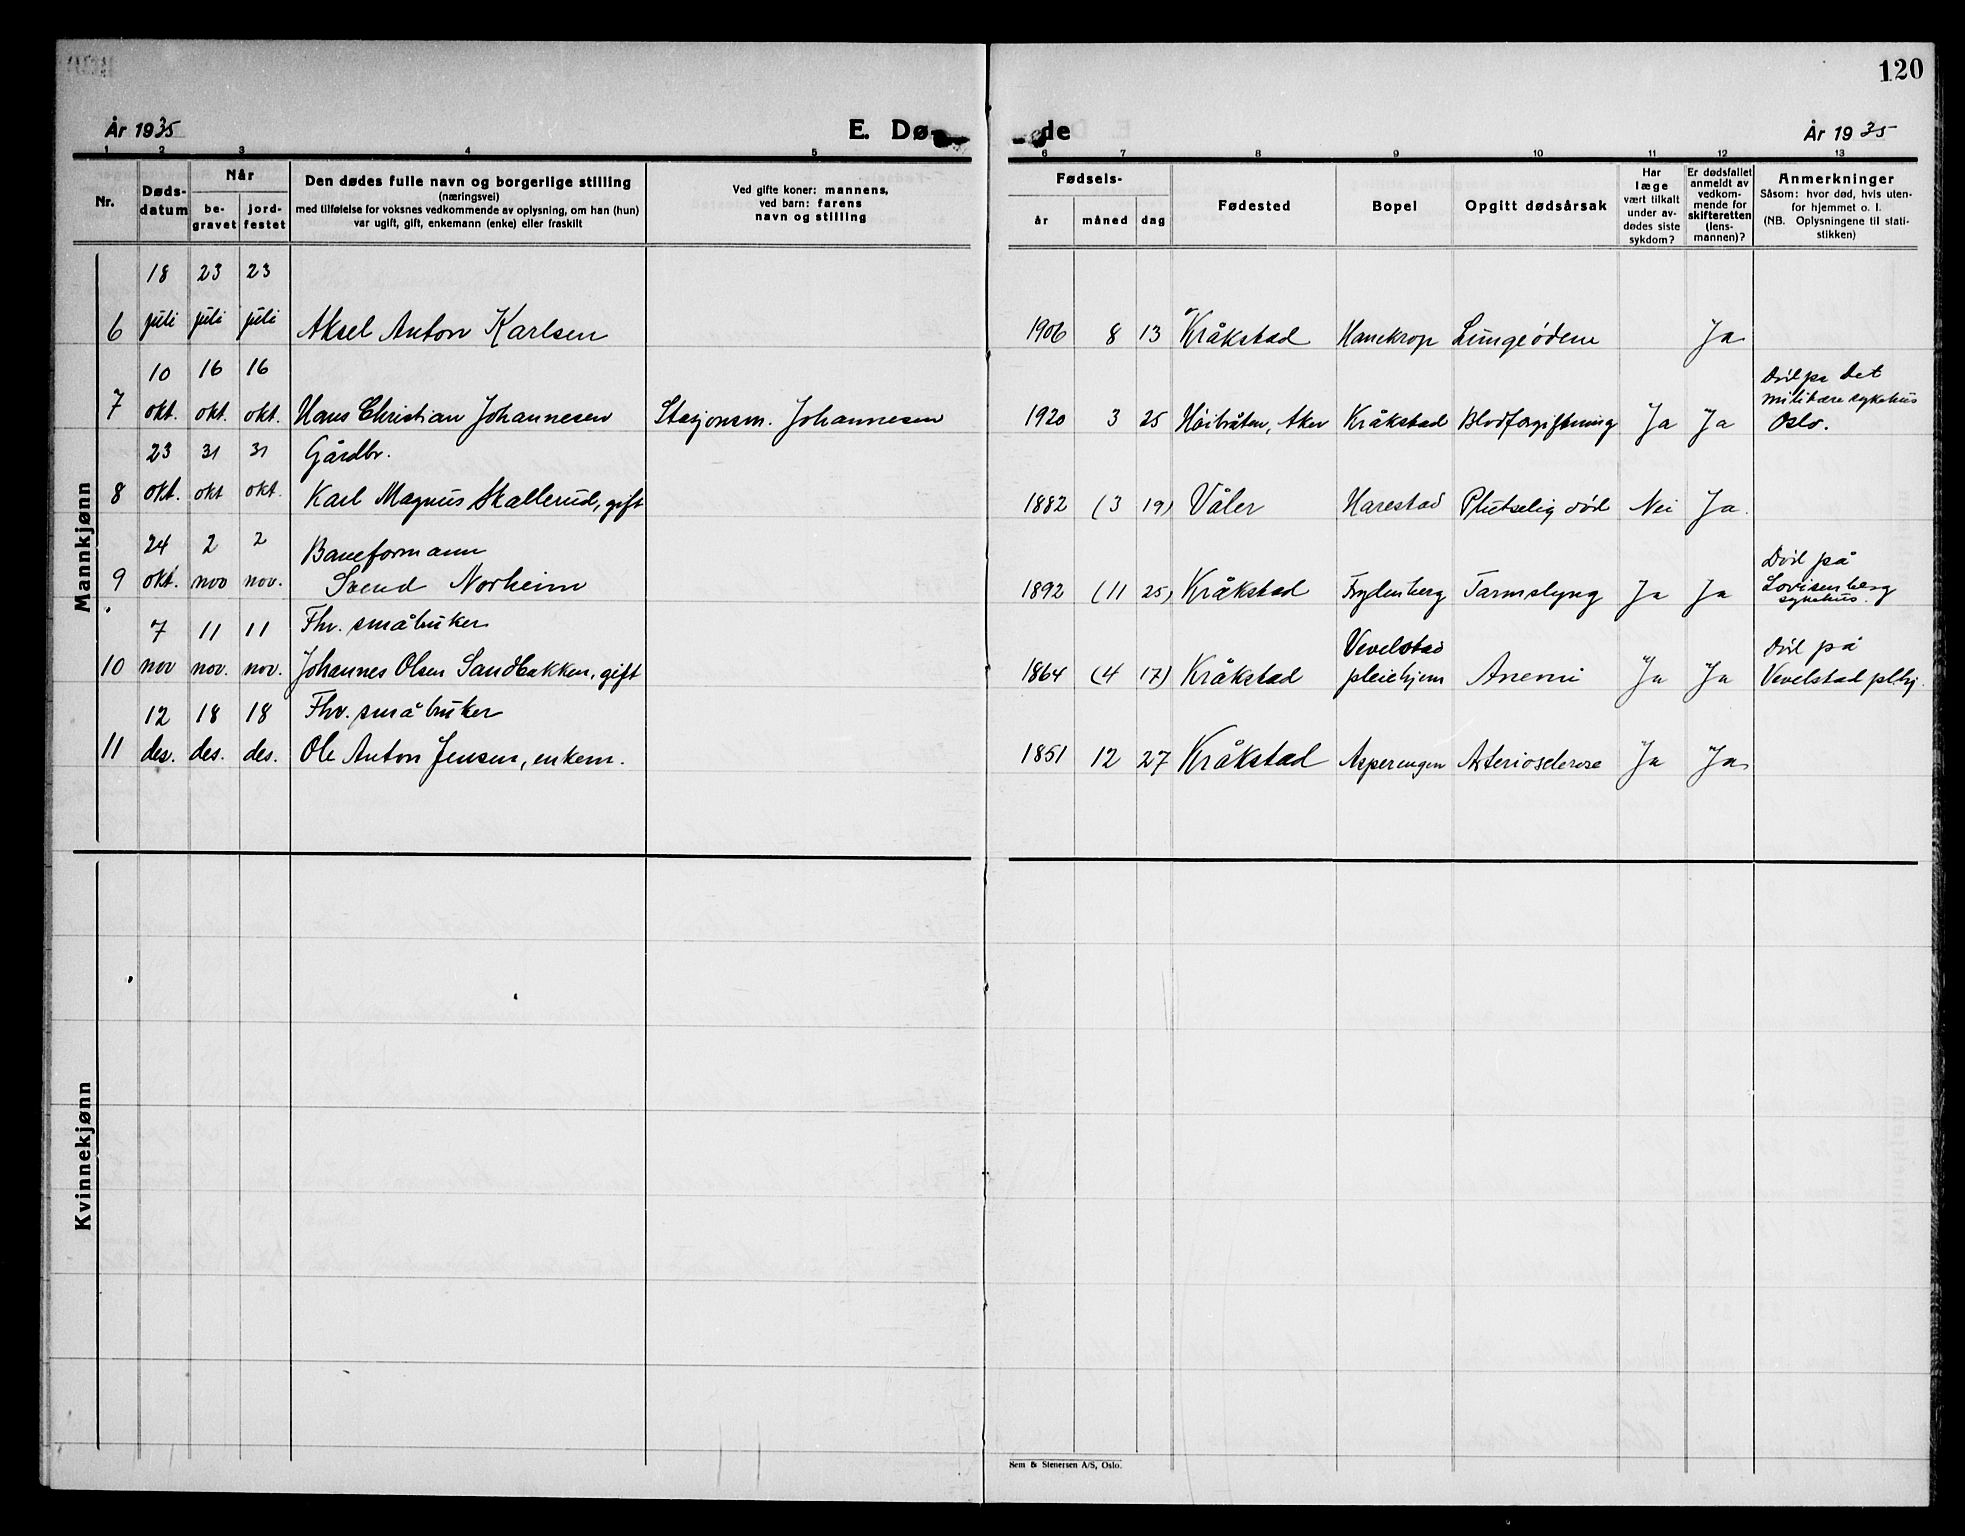 120
År 1935
E. Dø-
de
År 1935
1 2 3 4 5 6 7 8 9 10 11 12 13
Nr.
Døds-
datum
Når
be-
gravet
jord-
festet
Den dødes fulle navn og borgerlige stilling
(næringsvei)
med tilføielse for voksnes vedkommende av oplysning, om han (hun)
var ugift, gift, enkemann (enke) eller fraskilt
Ved gifte koner: mannens,
ved barn: farens
navn og stilling
Fødsels-
år måned dag
Fødested
Bopel
Opgitt dødsårsak
Har
læge
vært tilkalt
under av-
dødes siste
sykdom?
Er dødsfallet
anmeldt av
vedkom-
mende for
skifteretten
(lens-
mannen)?
Anmerkninger
Såsom: hvor død, hvis uten-
for hjemmet o. l.
(NB. Oplysningene til stati-
stikken)
Mannkjønn
18 23 23
6 juli juli juli Aksel Anton Karlsen 1906 8 13 Kråkstad Hanekrop Lungeødem Ja
10 16 16 Död på det
militære sykehus
7 okt. okt. okt. Hans Christian Johannesen Stasjonsm. Johannesen 1920 3 25 Höibråten, Aker Kråkstad Blodforgiftning Ja Ja Oslo.
23 31 31 Gårdbr.
8 okt. okt okt. Karl Magnus Skallerud, gift 1882 (3 19) Våler Harestad Plutselig död Nei Ja.
24 2 2 Baneformann Död på
9 okt. nov nov. Svend Norheim 1892 (11 25) Kråkstad Frydenberg Tarmslyng Ja Ja Lovisenberg
sykehus.
7 11 11 Fhv. småbruker Vevelstad Död på
10 nov nov. nov. Johannes Olsen Sandbakken, gift 1864 (4 17) Kråkstad pleiehjem Anemi Ja Ja Vevelstad plhj.
12 18 18 Fhv. småbruker
11 des. des. des. Ole Anton Jensen, enkem. 1851 12 27 Kråkstad Asperengen Arteriosclerose Ja Ja
Kvinnekjønn
Sem & Stenersen A/S, Oslo.